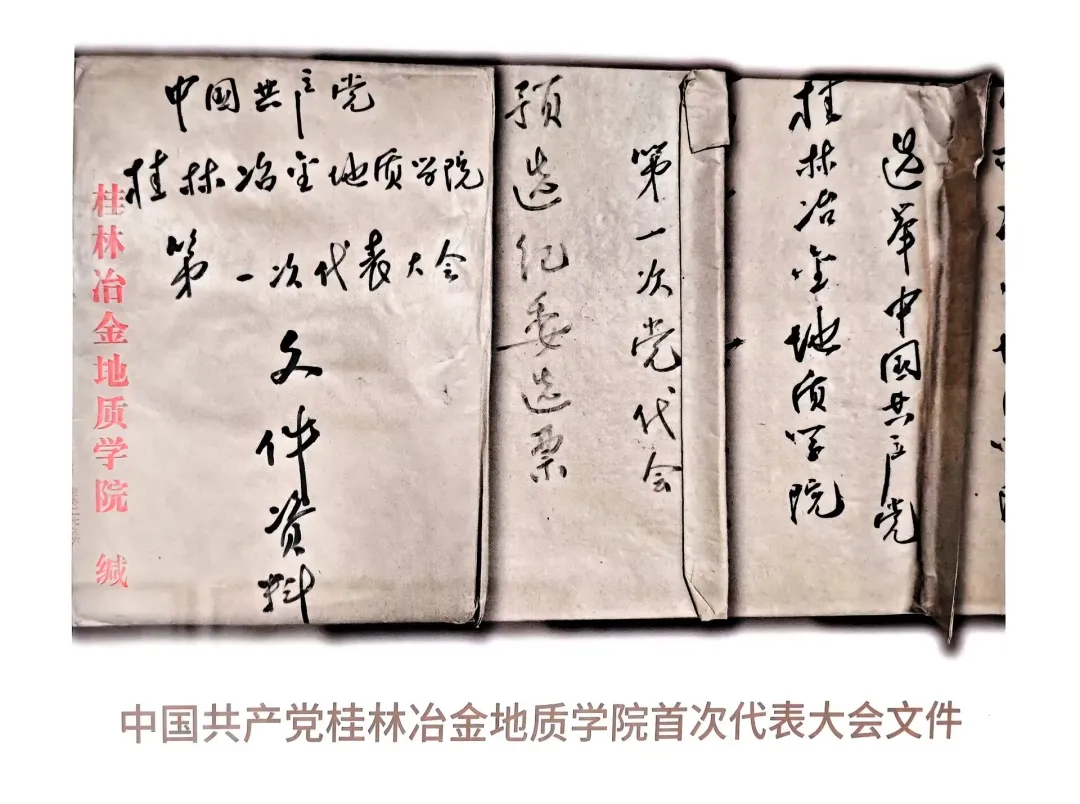 中国共产党
桂林冶金地质学院
第一次代表大会
文件资料
桂林冶金地质学院 缄
第一次党代会
预选纪委选票
选举中国共产党
桂林冶金地质学院
中国共产党桂林冶金地质学院首次代表大会文件